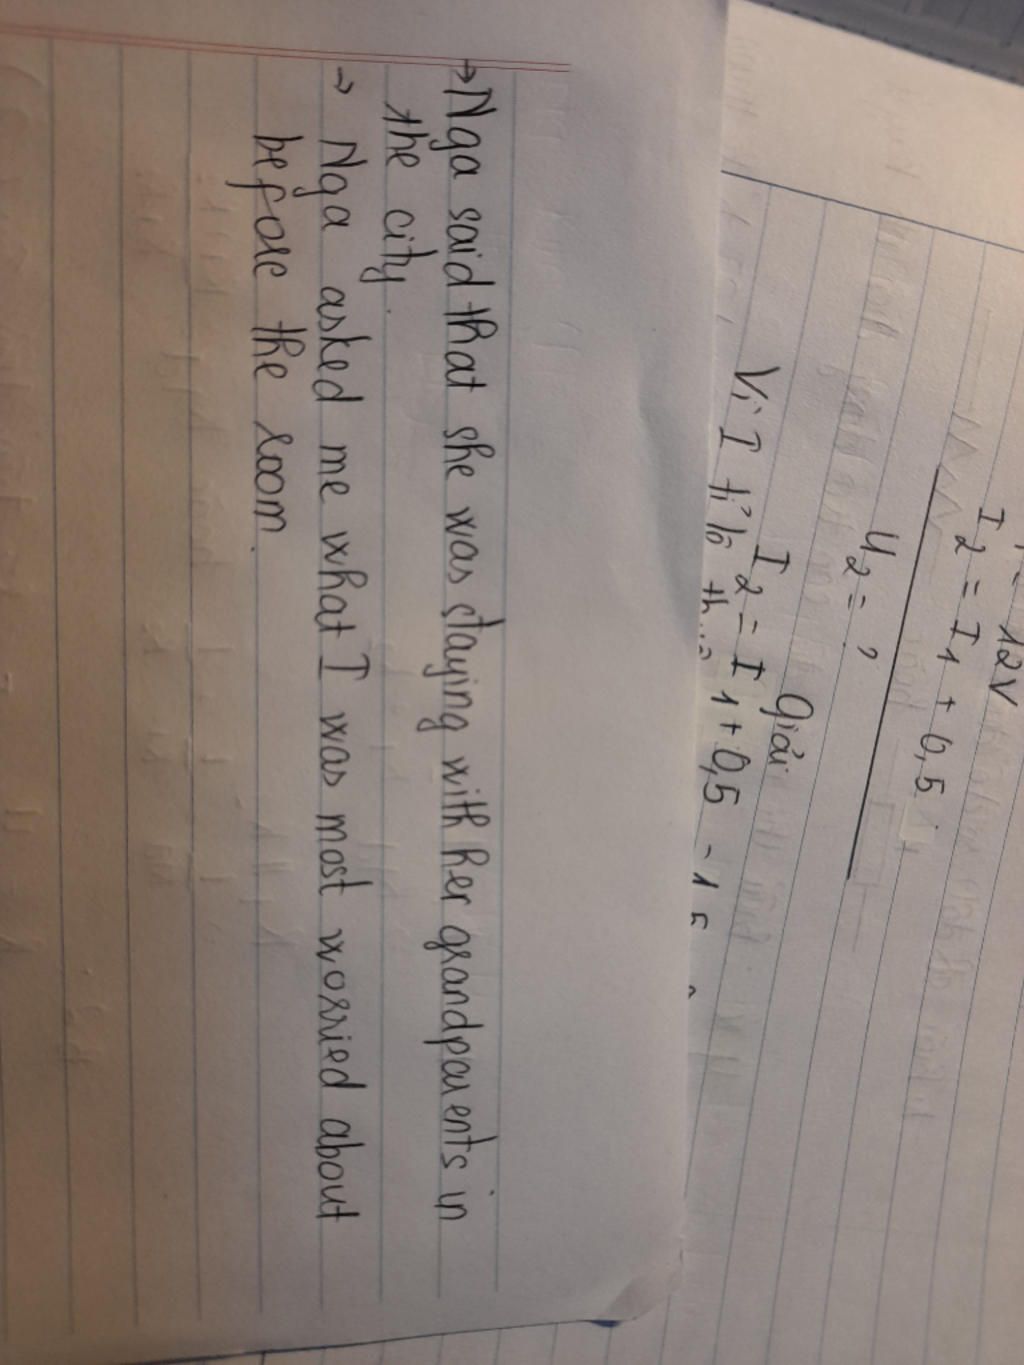 → Nga said that she was staying with her grandparents in
the city.
→ Nga asked me what I was most worried about
before the room.
12V
I2 = I1 + 0,5
U2 = ?
Giải
I2 = I1 + 0,5 - 1 5
Vì I tỉ lệ